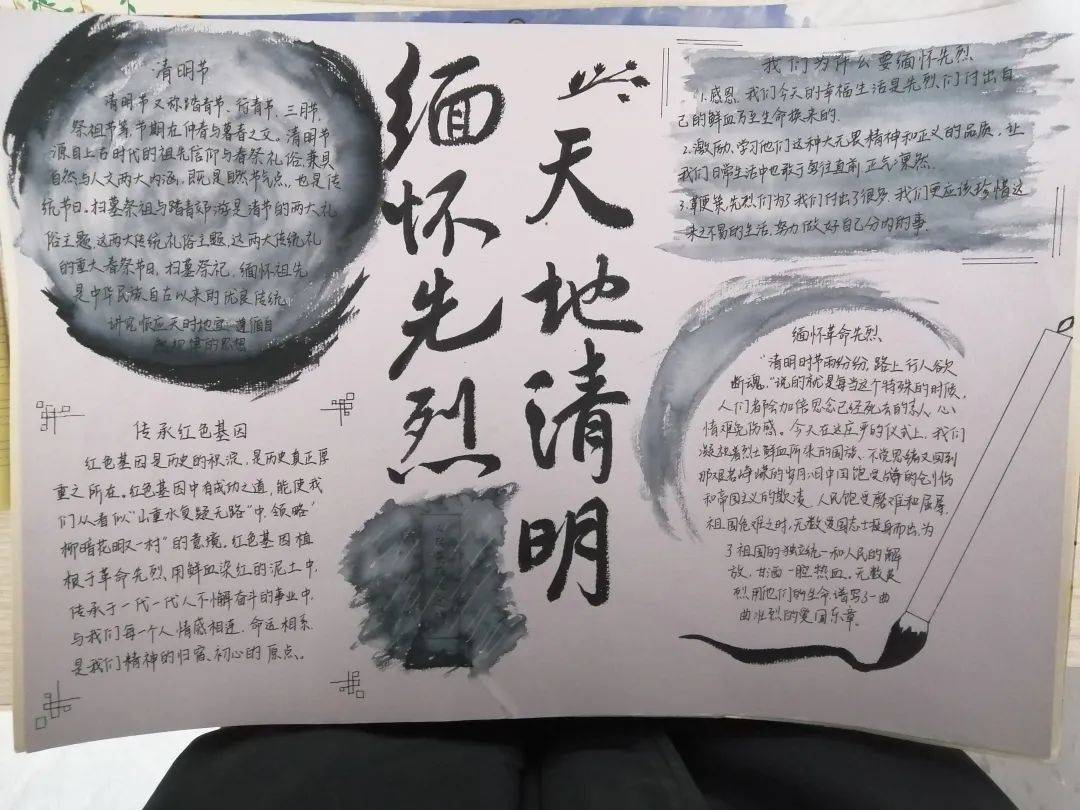 天地清明
缅怀先烈
清明节
清明节又称踏青节、行青节、三月节、
祭祖节等,节期在仲春与暮春之交。清明节
源自上古时代的祖先信仰与春祭礼俗,兼具
自然与人文两大内涵,既是自然节气点,也是传
统节日。扫墓祭祖与踏青郊游是清节的两大礼
俗主题,这两大传统礼俗主题,这两大传统礼
的重大春祭节日,扫墓祭祀、缅怀祖先
是中华民族自古以来的优良传统
讲究顺应天时地宜、遵循自
规律的思想
传承红色基因
红色基因是历史的积淀,是历史真正厚
重之所在。红色基因中有成功之道,能使我
们从看似“山重水复疑无路”中,领略“
柳暗花明又一村”的意境。红色基因植
根于革命先烈用鲜血染红的泥土中,
传承于一代一代人不懈奋斗的事业中,
与我们每个人情感相连,命运相系
是我们精神的归宿、初心的原点。
我们为什么要缅怀先烈
1.感恩,我们今天的幸福生活是先烈们付出自
己的鲜血乃至生命换来的.
2.激励,学习他们这种大无畏精神和正义的品质,让
我们日常生活中也敢于勇往直前,正气凛然.
3.鞭策先烈们为了我们付出了很多,我们更应该珍惜这
来之不易的生活,努力做好自己分内的事.
缅怀革命先烈
“清明时节雨纷纷,路上行人欲
断魂,”说的就是每当这个特殊的时候,
人们都会加倍思念已经死去的亲人,心
情难免伤感。今天在这庄严的仪式上,我们
凝视着烈士鲜血所染的国旗、不觉思绪又回到
那艰苦峥嵘的岁月:旧中国饱受战争的创伤
和帝国主义的欺凌,人民饱受磨难和屈辱,
祖国危难之时,无数爱国志士挺身而出,为
了祖国的独立统一和人民的解
放,甘洒一腔热血。无数英
烈用他们的生命,谱写了一曲
曲壮烈的爱国乐章。